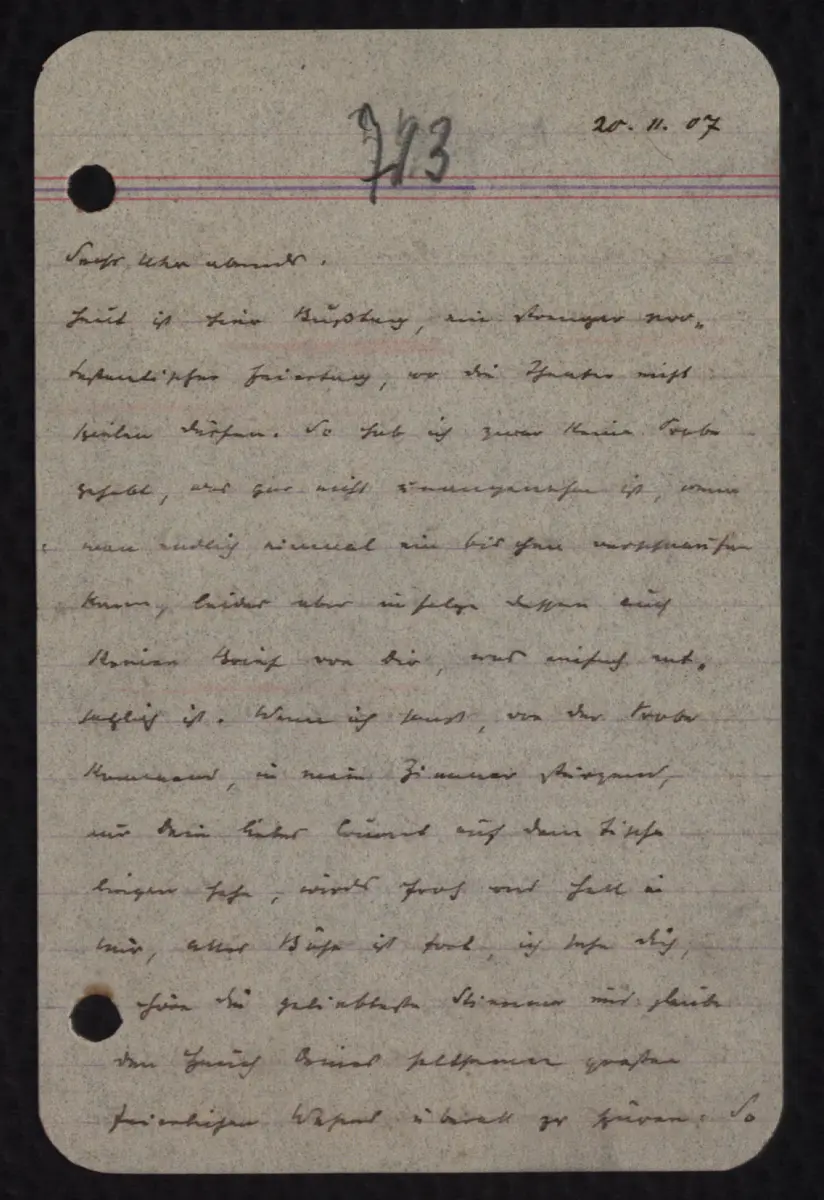 793
20. 11. 07
Sechs Uhr abends.
Heut ist hier Bußtag, ein strenger pro-
testantischer Feiertag, wo die Theater nicht
spielen dürfen. So hab ich zwar keine Probe
gehabt, was gar nicht unangenehm ist, wenn
man endlich einmal ein bischen verschnaufen
kann, leider aber infolge dessen auch
keinen Brief von Dir, was einfach ent-
setzlich ist. Wenn ich sonst, von der Probe
kommend, in mein Zimmer stürzend,
nur Dein liebes Couvert auf dem Tische
liegen sehe, wirds froh und hell in
mir, alles Böse ist fort, ich sehe Dich,
höre die geliebteste Stimme und glaube
den Hauch Deines seltsamen großen
feierlichen Wesens überall zu spüren. So